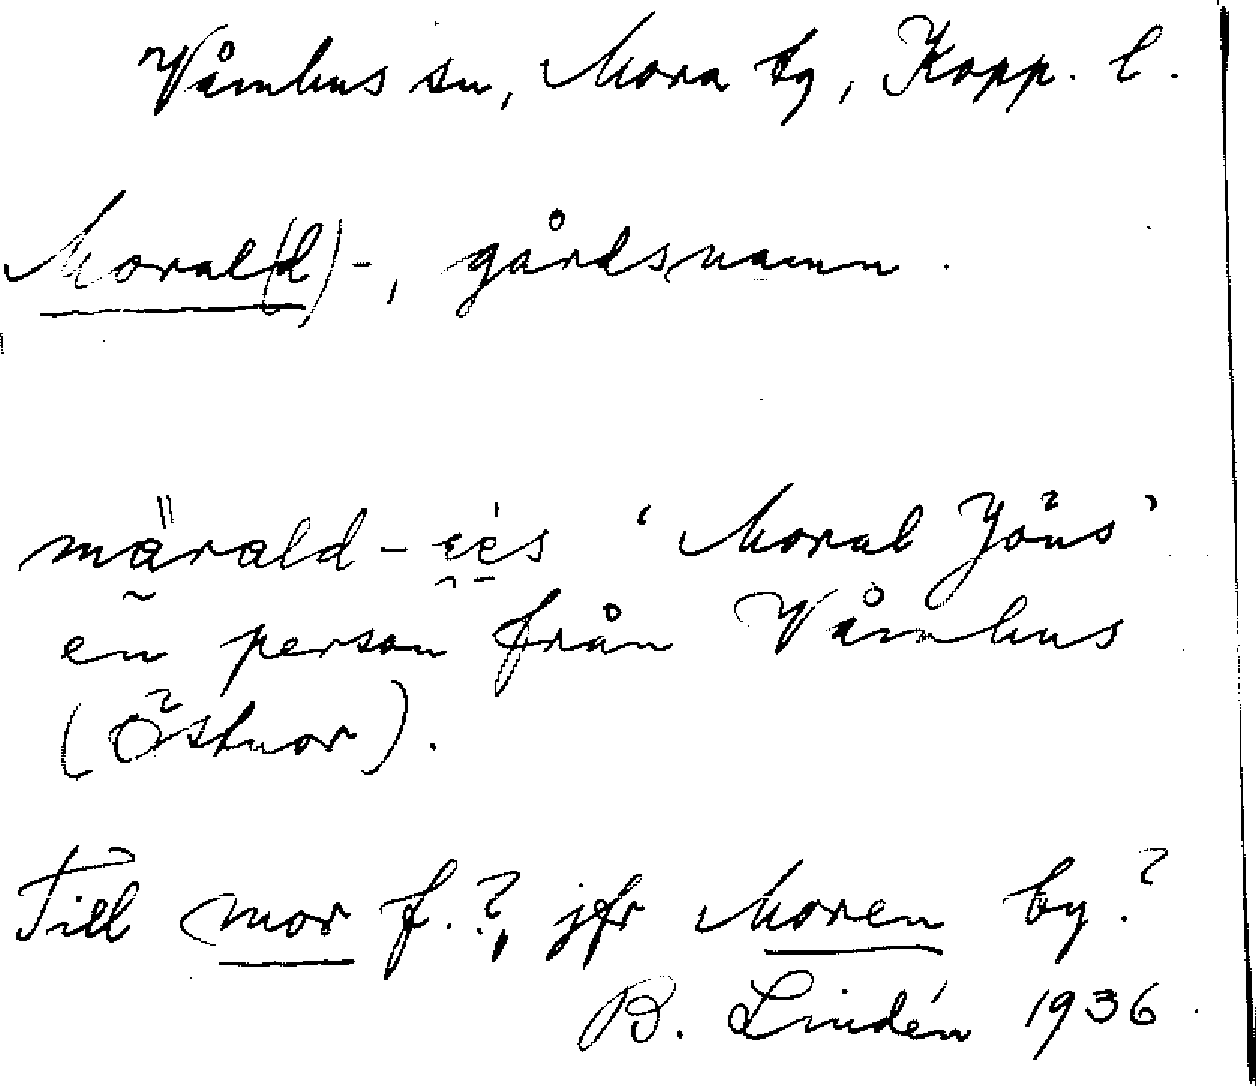 Våmhus sn, Mora tg, Kopp. l.
Moral(d)-, gårdsnamn.
'Moral Jöns'
en person från Våmhus
(Östnor).
Till mor f.?, jfr Moren by.?
B. Lindén 1936